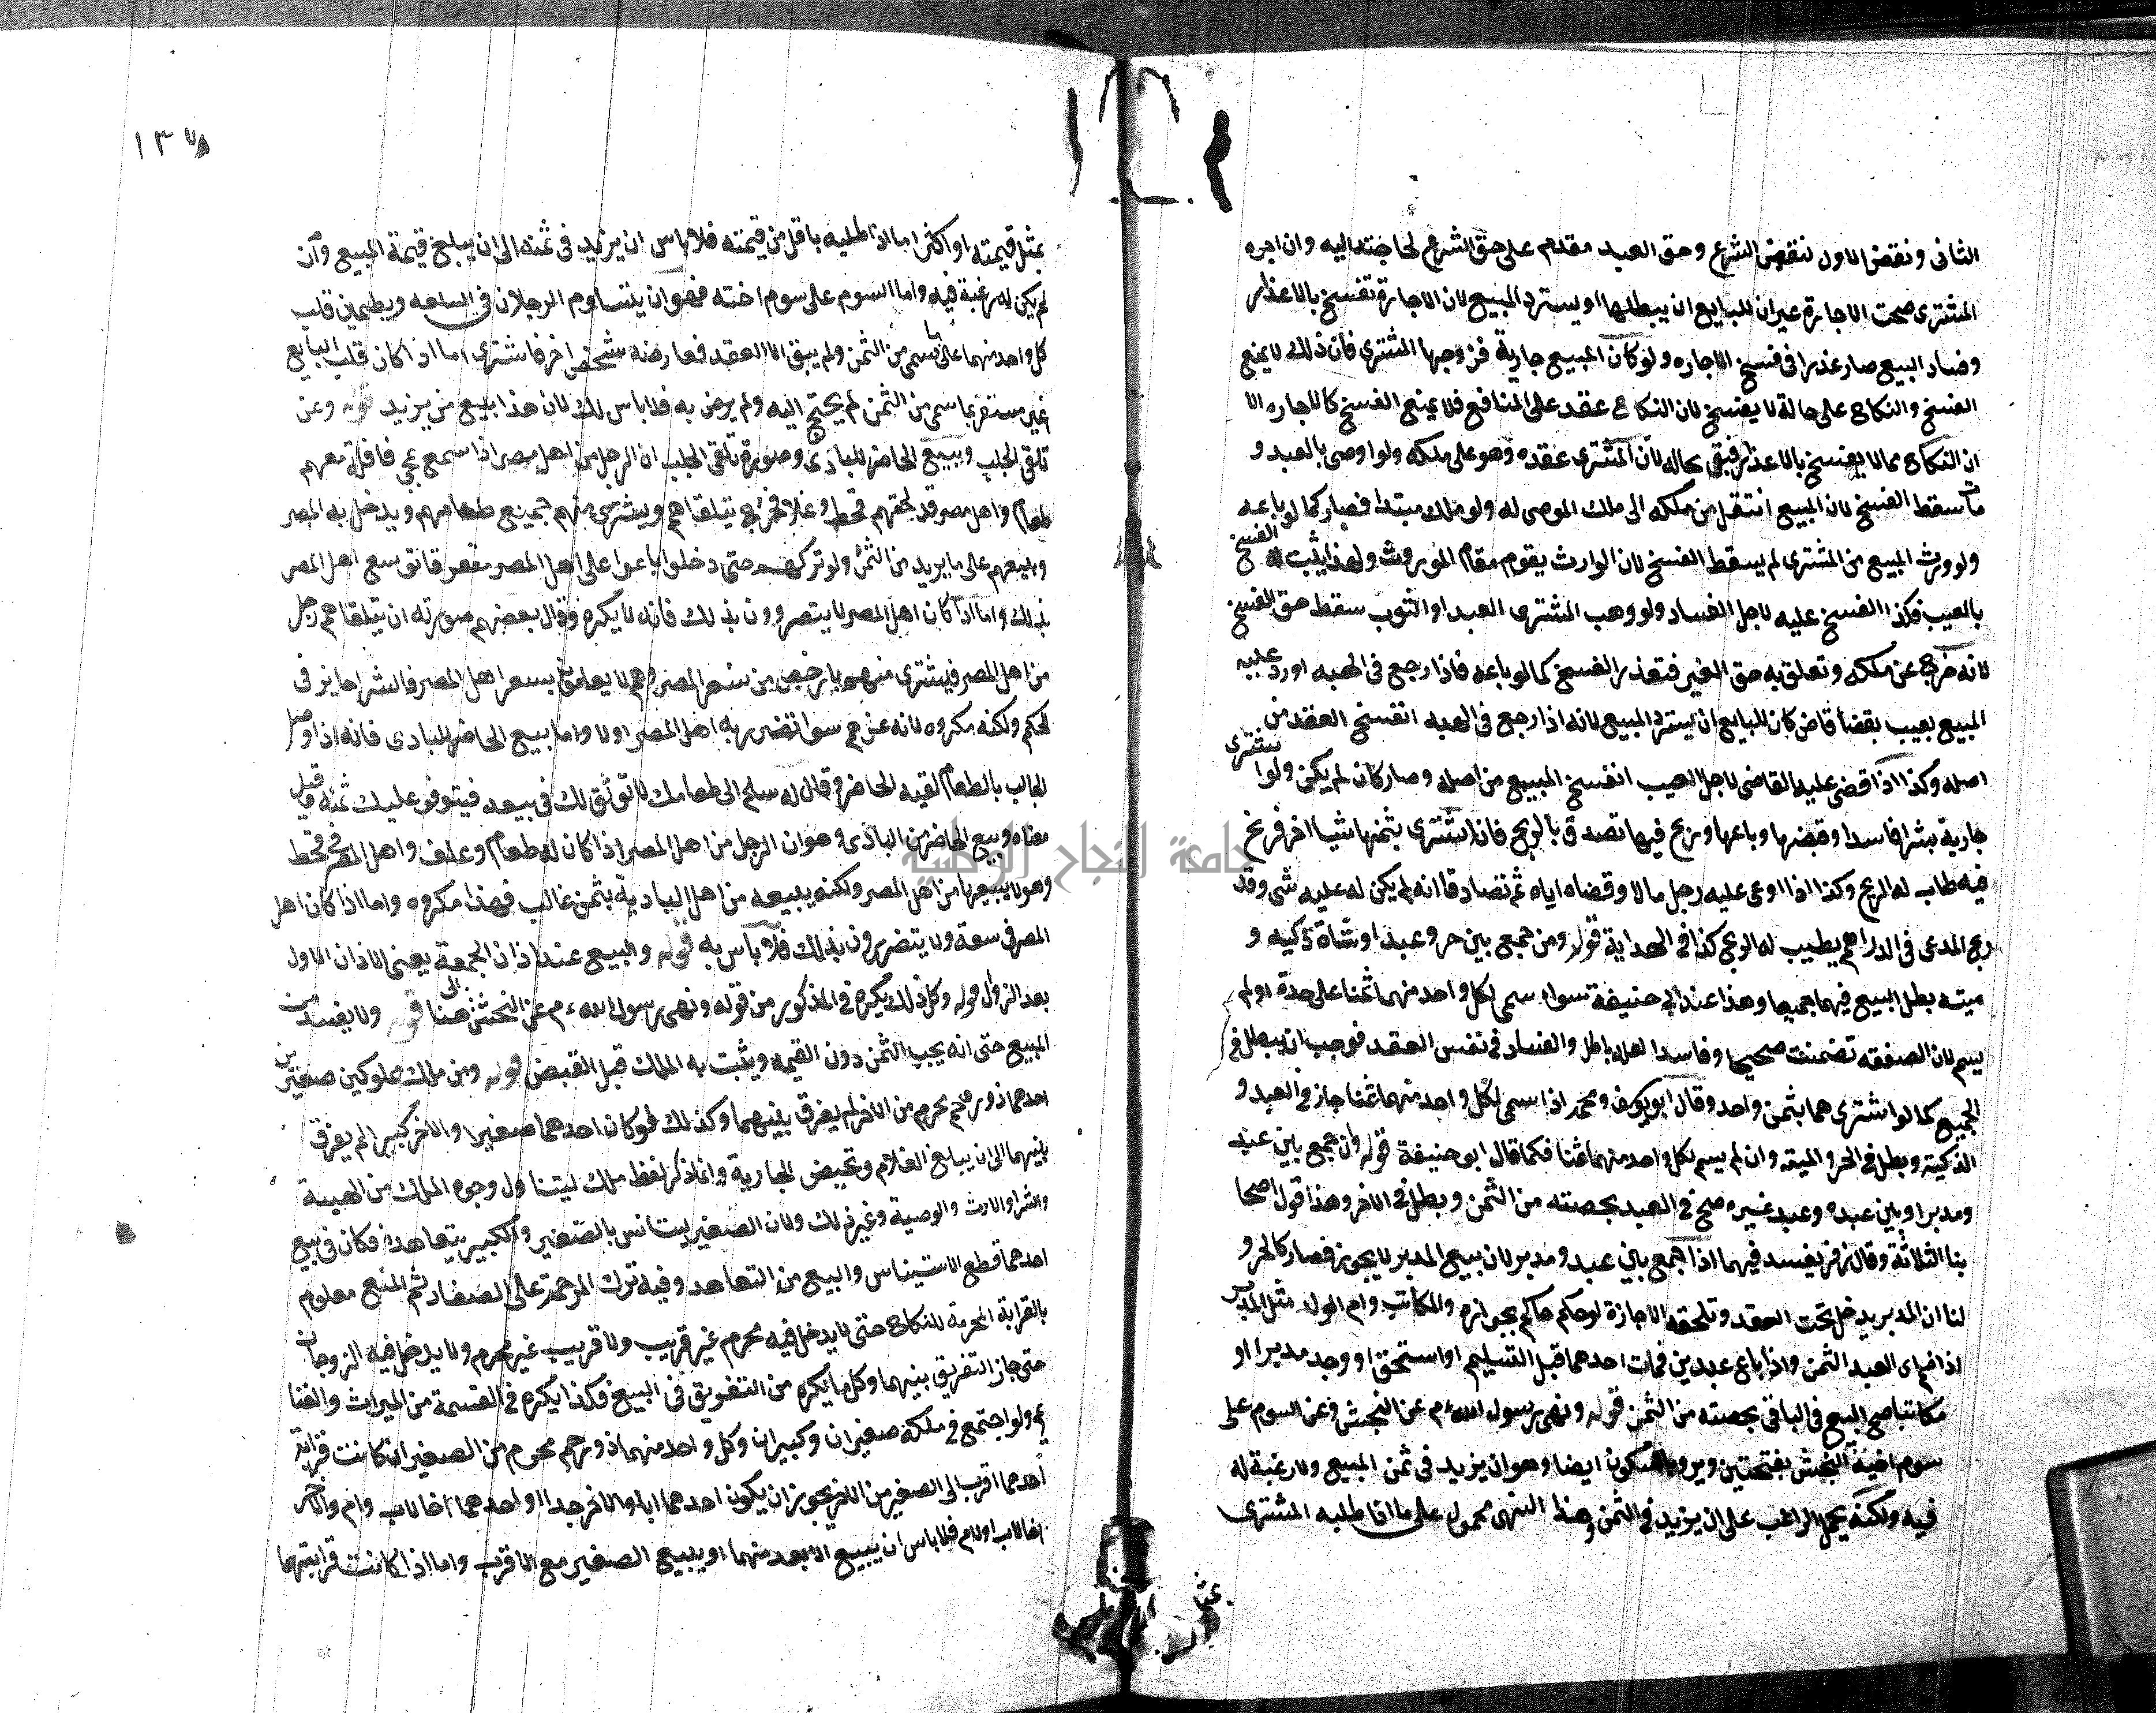 الثانى ونقض الاول لنقض الشرع وحق العبد مقدم على حق الشرع لحاجته اليه وان اجره
المشترى صحت الاجارة غير ان للبايع ان يبطلها ويسترد المبيع لان الاجارة تفسخ بالاعذار
وفساد البيع صار عذرا فى فسخ الاجاره ولو كان المبيع جارية فزوجها المشترى فان ذلك لا يمنع
الفسخ والنكاح على حالة لا يفسخ لان النكاح عقد على المنافع فلا يمنع الفسخ كالاجاره الا
ان النكاح مما لا يفسخ بالاعذار فبقى بحاله لان المشترى عقده وهو على ملكه ولو اوصى بالعبد و
مات سقط الفسخ لان المبيع انتقل من ملكه الى ملك الموصى له وهو ملك مبتدا فصار كما لو باعه
ولو ورث المبيع من المشترى لم يسقط الفسخ لان الوارث يقوم مقام الموروث ولهذا يثبت له الفسخ
بالعيب فكذا الفسخ عليه لاجل الفساد ولو وهب المشترى العبد او الثوب سقط حق الفسخ
لانه خرج عن ملكه وتعلق به حق الغير فتعذر الفسخ كما لو باعه فاذا رجع فى الهبه او رد عليه
المبيع بعيب بقضا قاض كان للبايع ان يسترد المبيع لانه اذا رجع فى الهبه انفسخ العقد من
اصله وكذا اذا قضى عليه القاضى لاجل العيب انفسخ المبيع من اصله وصار كان لم يكن ولو اشترى
جارية بشرا فاسد وقبضها وباعها وربح فيها تصدق بالربح فان اشترى بثمنها شيا اخر فربح
فيه طاب له الربح وكذا اذا ادعى عليه رجل مالا وقضاه اياه ثم تصادقا انه لم يكن له عليه شى وقد
ربح المدعى فى الدراهم يطيب له الربح كذا فى الهداية قوله ومن جمع بين حر وعبد او شاة ذكيه و
ميته بطل البيع فيهما جميعا وهذا عند ابى حنيفة سوا سمى لكل واحد منهما ثمنا على حدة او لم
يسم لان الصفقه تضمنت صحيحا وفاسدا والفساد فى نفس العقد فوجب ان يبطل فى
الجميع كما لو اشترى هما بثمن واحد وقال ابو يوسف ومحمد اذا سمى لكل واحد منهما ثمنا جاز فى العبد و
الذكية وبطل فى الحر والميته وان لم يسم لكل واحد منهما ثمنا فكما قال ابو حنيفة قوله وان جمع بين عبد
ومدبر او بين عبده وعبد غيره صح فى العبد بحصته من الثمن وبطل فى الاخر وهذا قول اصحا
بنا الثلاثة وقال زفر يفسد فيهما اذا جمع بين عبد ومدبر لان بيع المدبر لا يجوز فصار كالحر و
لنا ان المدبر يدخل تحت العقد وتلحقه الاجازة لو حكم حاكم بجوازه والمكاتب وام الولد مثل المدبر
اذا ضم الى العبد الثمن واذا باع عبدين فمات احدهما قبل التسليم او استحق او وجد مدبرا او
مكاتبا صح البيع فى الباقى بحصته من الثمن قوله ونهى رسول الله عم عن النجش وعن السوم على
سوم اخيه النجش بفتحتين ويروى بالسكون ايضا وهو ان يزيد فى ثمن المبيع ولا رغبة له
فيه ولكنه يحمل الراغب على ان يزيد فى الثمن وهذا النهى محمول على ما اذا طلبه المشترى
١٣٧
بمثل قيمته او اكثر اما اذا طلبه باقل من قيمته فلا باس ان يزيد فى ثمنه الى ان يبلغ قيمة المبيع وان
لم يكن له رغبة فيه واما السوم على سوم اخيه فهو ان يتساوم الرجلان فى السلعه ويطمين قلب
كل واحد منهما على ما سمى من الثمن ولم يبق الا العقد فعارضه شخص اخر فاشترى اما اذا كان قلب البايع
غير مستقر بما سمى من الثمن لم يجنح اليه ولم يرض به فلا باس لك لان هذا بيع من يزيد قوله وعن
تلقى الجلب وبيع الحاضر للبادى وصورة تلقى الجلب ان الرجل من اهل مصر اذا سمع بمجى قافلة معهم
طعام واهل مصر قد لحقهم قحط وغلا فخرج يتلقاهم ويشترى منهم جميع طعامهم ويدخل به المصر
ويبيعهم على ما يريد من الثمن ولو تركهم حتى دخلوا باعوا على اهل المصر متفرقا توسع اهل المصر
بذلك واما اذا كان اهل المصر لا يتضررون بذلك فانه لا يكره وقال بعضهم صورته ان يتلقاهم رجل
من اهل المصر فيشترى منهم بارخص من سعر المصر وهم لا يعلمون بسعر اهل المصر فالشرا جايز فى
الحكم ولكنه مكروه لانه غرهم سوا تضرر به اهل المصر او لا واما بيع الحاضر للبادى فانه اذا وصل
الجالب بالطعام لقيه الحاضر وقال له سلم الى طعامك لاتوثق لك فى بيعه فيتوفر عليك ثمنه وقيل
معناه وبيع الحاضر من البادى وهو ان الرجل من اهل المصر اذا كان له طعام وعلف واهل المصر فى قحط
وهو لا يبيعها من اهل المصر ولكنه يبيعه من اهل البادية بثمن غالب فهذا مكروه واما اذا كان اهل
المصر فى سعة ولا يتضررون بذلك فلا باس به قوله والبيع عند اذان الجمعة يعنى الاذان الاول
بعد الزوال قوله وكل ذلك يكره فى المذكور من قوله ونهى رسول الله عم عن النجش الى هنا قوله ولا يفسد
المبيع حتى انه يجب الثمن دون القيمه ويثبت به الملك قبل القبض قوله ومن ملك مملوكين صغيرين
احدهما ذو رحم محرم من الاخر لم يفرق بينهما وكذلك لو كان احدهما صغيرا والاخر كبيرا لم يفرق
بينهما الى ان يبلغ الغلام وتحيض الجارية وانما ذكر لفظ ملك ليتناول وجوه الملك من الهبة
والشرا والارث والوصية وغير ذلك ولان الصغير يستانس بالصغير والكبير يتعاهده فكان فى بيع
احدهما قطع الاستيناس والبيع من التعاهد وفيه ترك المرحمة على الصغار ثم المنع معلوم
بالقرابة المحرمة للنكاح حتى لا يدخل فيه محرم غير قريب ولا قريب غير محرم ولا يدخل فيه الزوجان
حتى جاز التفريق بينهما وكل ما يكره من التفريق فى البيع فكذا يكره فى القسمة من الميراث والغنا
يم ولو اجتمع فى ملكه صغيران وكبيران وكل واحد منهما ذو رحم محرم من الصغير ان كانت قرابة
احدهما اقرب الى الصغير من الاخر يجوز ان يكون احدهما ابا والاخر جدا او احدهما اخا لاب وام والاخر
اخا لاب او لام فلا باس ان يبيع الابعد منهما او يبيع الصغير مع الاقرب واما اذا كانت قرابتهما
جامعة النجاح الوطنية